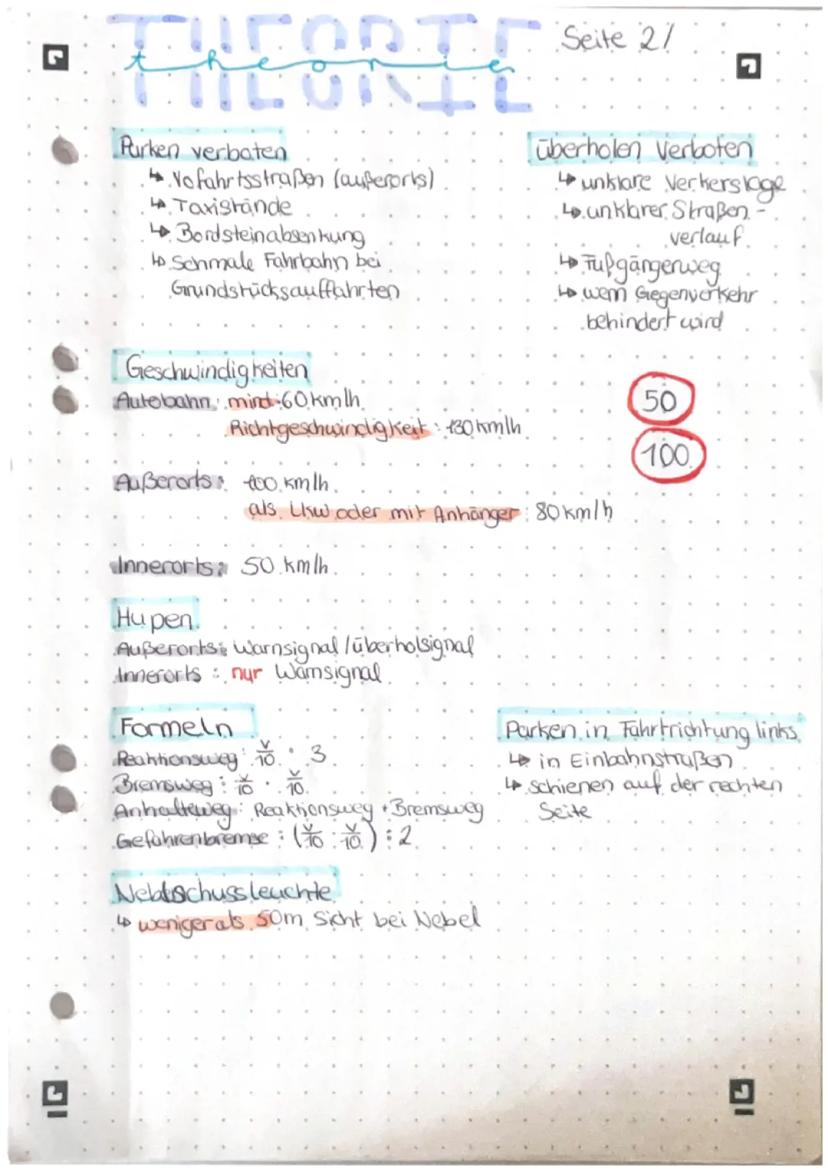 THEORIE
theorie
Seite 2/
Parken verboten
↳ Vofahrtsstraßen (außerorts)
↳ Taxistände
↳ Bordsteinabsenkung
↳ Schmale Fahrbahn bei
Grundstücksauffahrten
überholen verboten
↳ unklare Verkerslage
↳ unklarer Straßen-
verlauf
↳ Fußgängerweg
↳ wenn Gegenverkehr
behindert wird
Geschwindigkeiten
Autobahn: mind. 60 km/h
Richtgeschwindigkeit: 130 km/h
50
100
Außerorts: 100 km/h
als Lkw oder mit Anhänger: 80 km/h
Innerorts: 50 km/h
Hupen
Außerorts: Warnsignal/überholsignal
Innerorts: nur Warnsignal
Formeln
Reaktionsweg: v/10 · 3
Bremsweg: v/10 · v/10
Anhalteweg: Reaktionsweg + Bremsweg
Gefahrenbremse: (v/10 · v/10) : 2
Parken in Fahrtrichtung links
↳ in Einbahnstraßen
↳ schienen auf der rechten
Seite
Nebelschussleuchte
↳ weniger als 50m Sicht bei Nebel